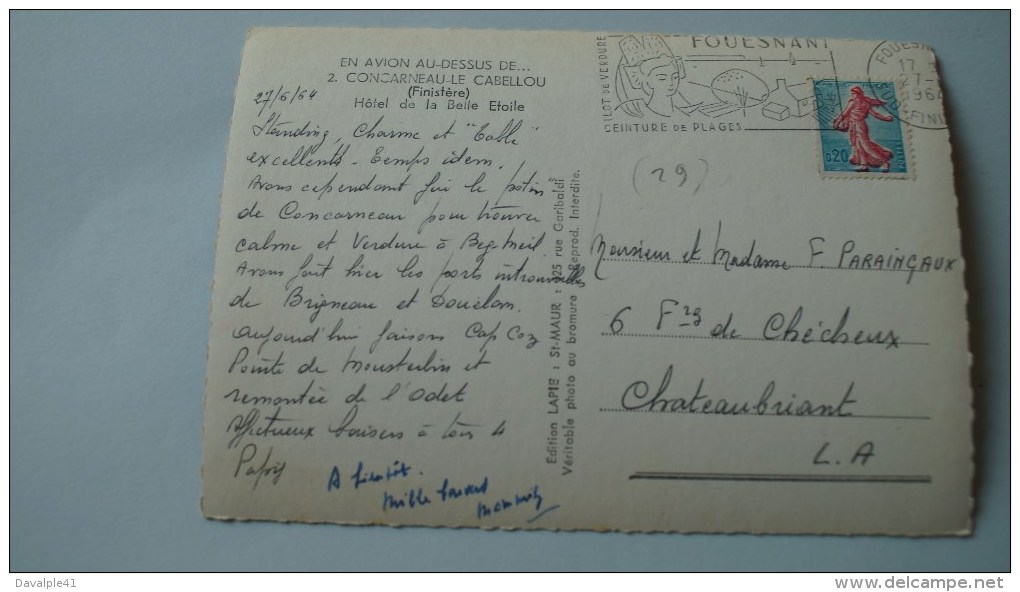 EN AVION AU-DESSUS DE...
2. CONCARNEAU-LE CABELLOU
(Finistère)
Hôtel de la Belle Etoile
27/6/64
Standing, Charme et "Table"
excellents - Temps idem.
Avons cependant fui le potin
de Concarneau pour trouver
calme et Verdure à Beg Meil.
Avons fait hier les ports introuvables
de Brigneau et Douelan.
aujourd'hui faisons Cap Coz
Pointe de Mousterlin et
remontée de l'Odet
Affectueux baisers à tous 4
Papy
A bientôt.
Mille baisers
Mammily
Edition LAPIE : St-MAUR : 225 rue Garibaldi
Véritable photo au bromure - Reprod. Interdite.
FOUESNANT
ILOT DE VERDURE
CEINTURE DE PLAGES
FOUESN
17
27-
1964
FINI
0,20
POSTES
(29)
Monsieur et Madame F. PARAINGAUX
6 Fbg de Chécheux
Chateaubriant
L.A
Davalple41
delcampe.net